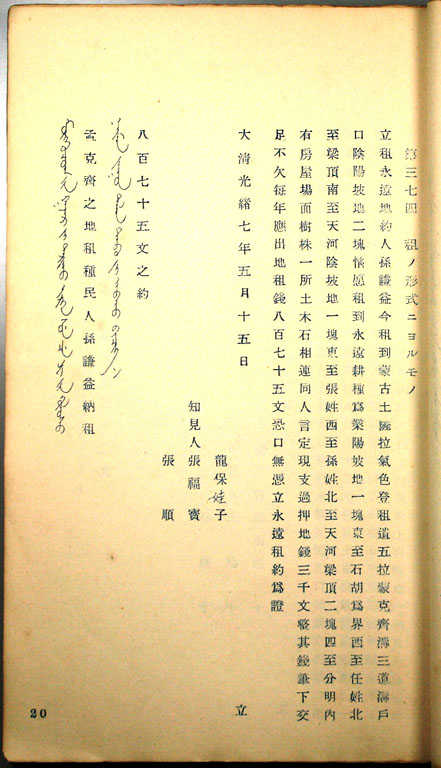 第三七四 租ノ形式ニヨルモノ
立租永遠地約人孫謙益今租到蒙古土匾拉氣色登租遺五拉蒙克齊溝三道溝戶
口陰陽坡地二塊情愿租到永遠耕種爲業陽坡地一塊東至石胡爲界西至任姓北
至梁頂南至天河陰坡地一塊東至張姓西至孫姓北至天河梁頂二塊四至分明內
有房屋場面樹株一所土木石相連同人言定現支過押地錢三千文整其錢筆下交
足不欠每年應出地租錢八百七十五文恐口無憑立永遠租約爲證
大清光緒七年五月十五日 立
龍保娃子
知見人張福寶
張 順
八百七十五文之約
孟克齊之地租種民人孫謙益納租
20